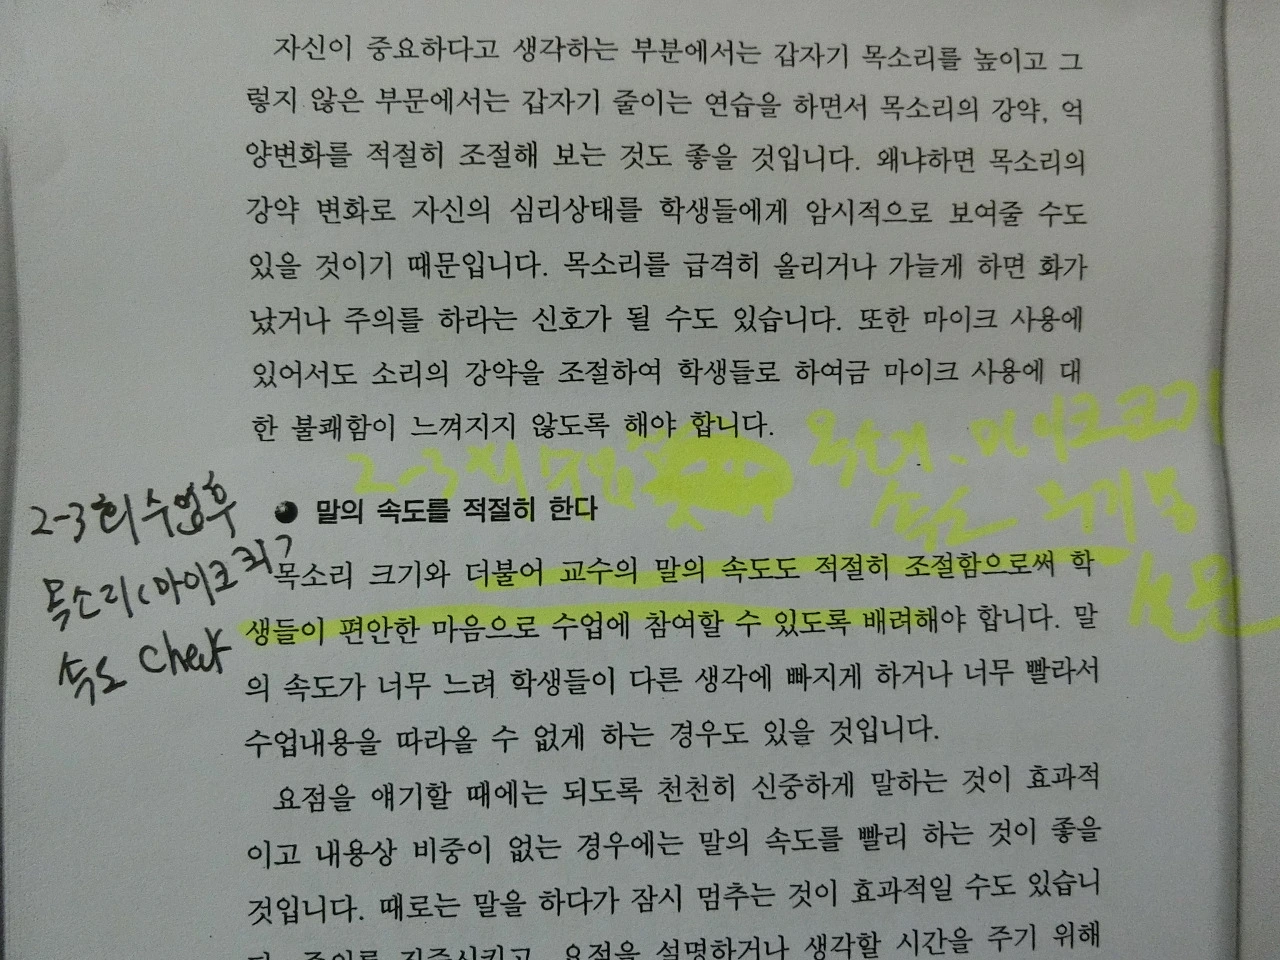 자신이 중요하다고 생각하는 부분에서는 갑자기 목소리를 높이고 그
렇지 않은 부문에서는 갑자기 줄이는 연습을 하면서 목소리의 강약, 억
양변화를 적절히 조절해 보는 것도 좋을 것입니다. 왜냐하면 목소리의
강약 변화로 자신의 심리상태를 학생들에게 암시적으로 보여줄 수도
있을 것이기 때문입니다. 목소리를 급격히 올리거나 가늘게 하면 화가
났거나 주의를 하라는 신호가 될 수도 있습니다. 또한 마이크 사용에
있어서도 소리의 강약을 조절하여 학생들로 하여금 마이크 사용에 대
한 불쾌함이 느껴지지 않도록 해야 합니다.
2-3회 수업 마이크크기
속도
2-3회 수업후
목소리(마이크 크기)
속도 check
● 말의 속도를 적절히 한다
목소리 크기와 더불어 교수의 말의 속도도 적절히 조절함으로써 학
생들이 편안한 마음으로 수업에 참여할 수 있도록 배려해야 합니다. 말
의 속도가 너무 느려 학생들이 다른 생각에 빠지게 하거나 너무 빨라서
수업내용을 따라올 수 없게 하는 경우도 있을 것입니다.
요점을 얘기할 때에는 되도록 천천히 신중하게 말하는 것이 효과적
이고 내용상 비중이 없는 경우에는 말의 속도를 빨리 하는 것이 좋을
것입니다. 때로는 말을 하다가 잠시 멈추는 것이 효과적일 수도 있습니
다. 주의를 집중시키고, 요점을 설명하거나 생각할 시간을 주기 위해